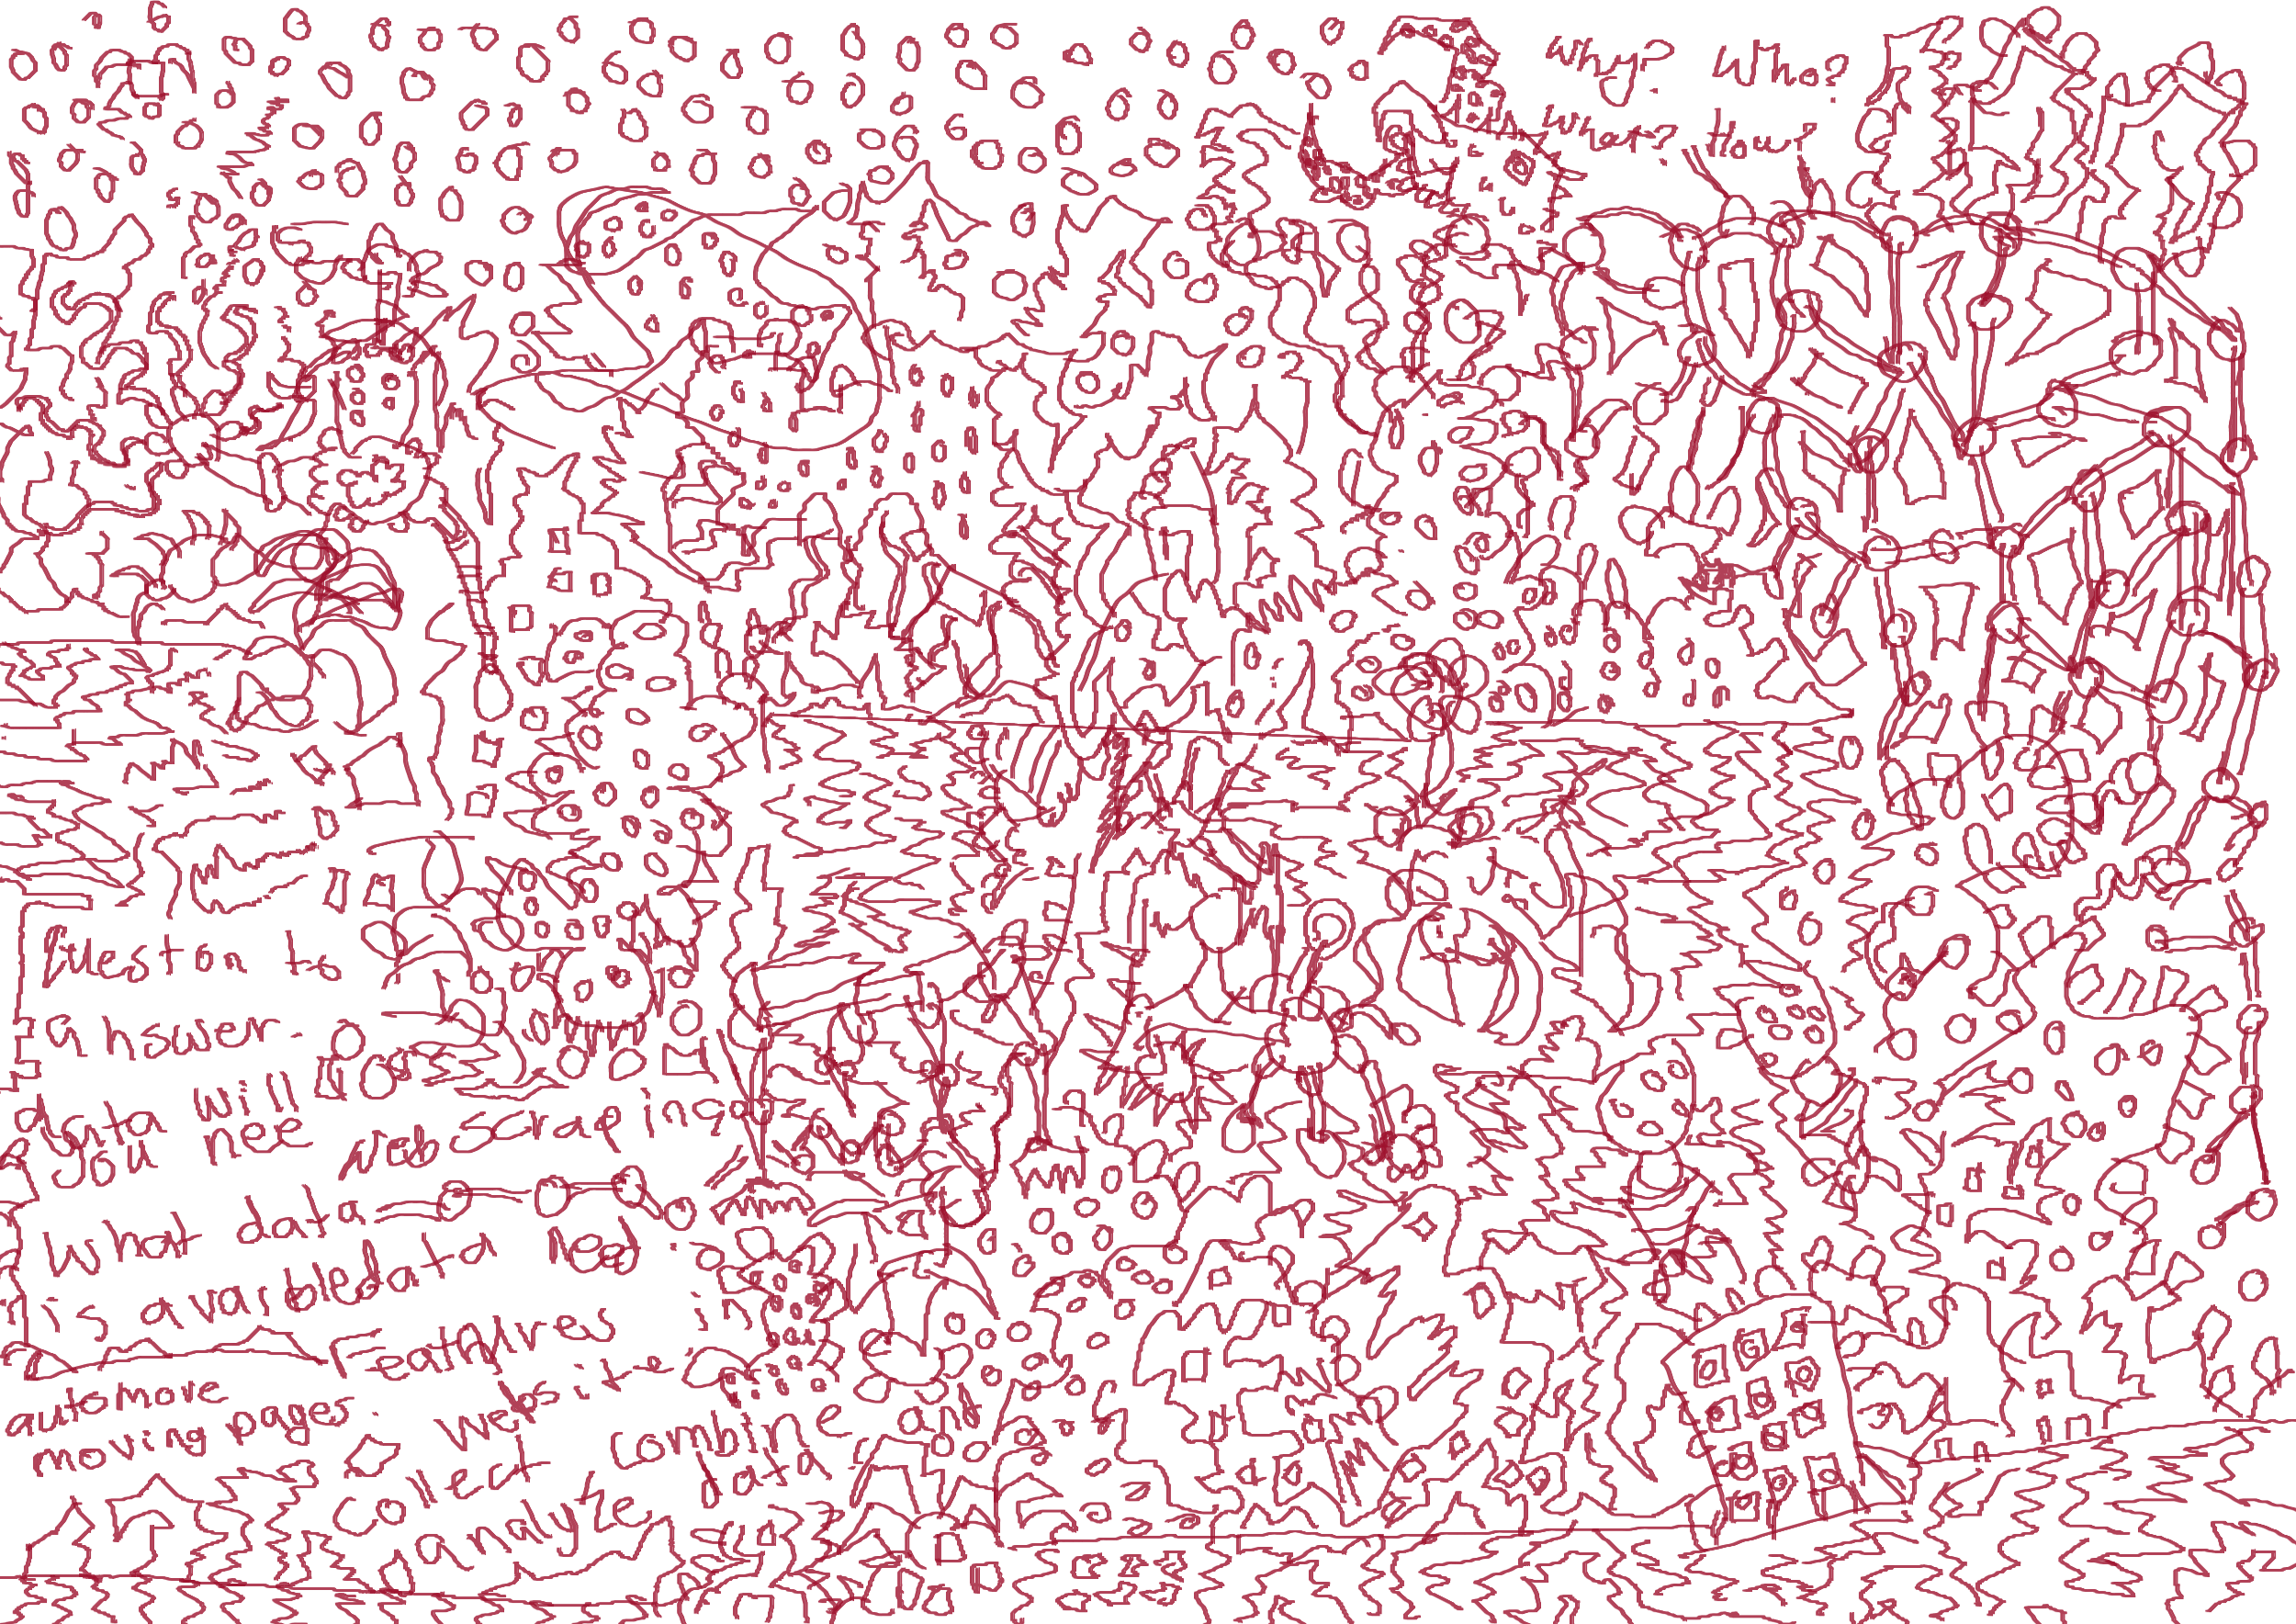 Why? Who?
What? How?
Queston to
answer.
data will
you nee web scraping
What data
is avaibledata need
Feathures in
automove website
moving pages.
collect combine and
analyze data